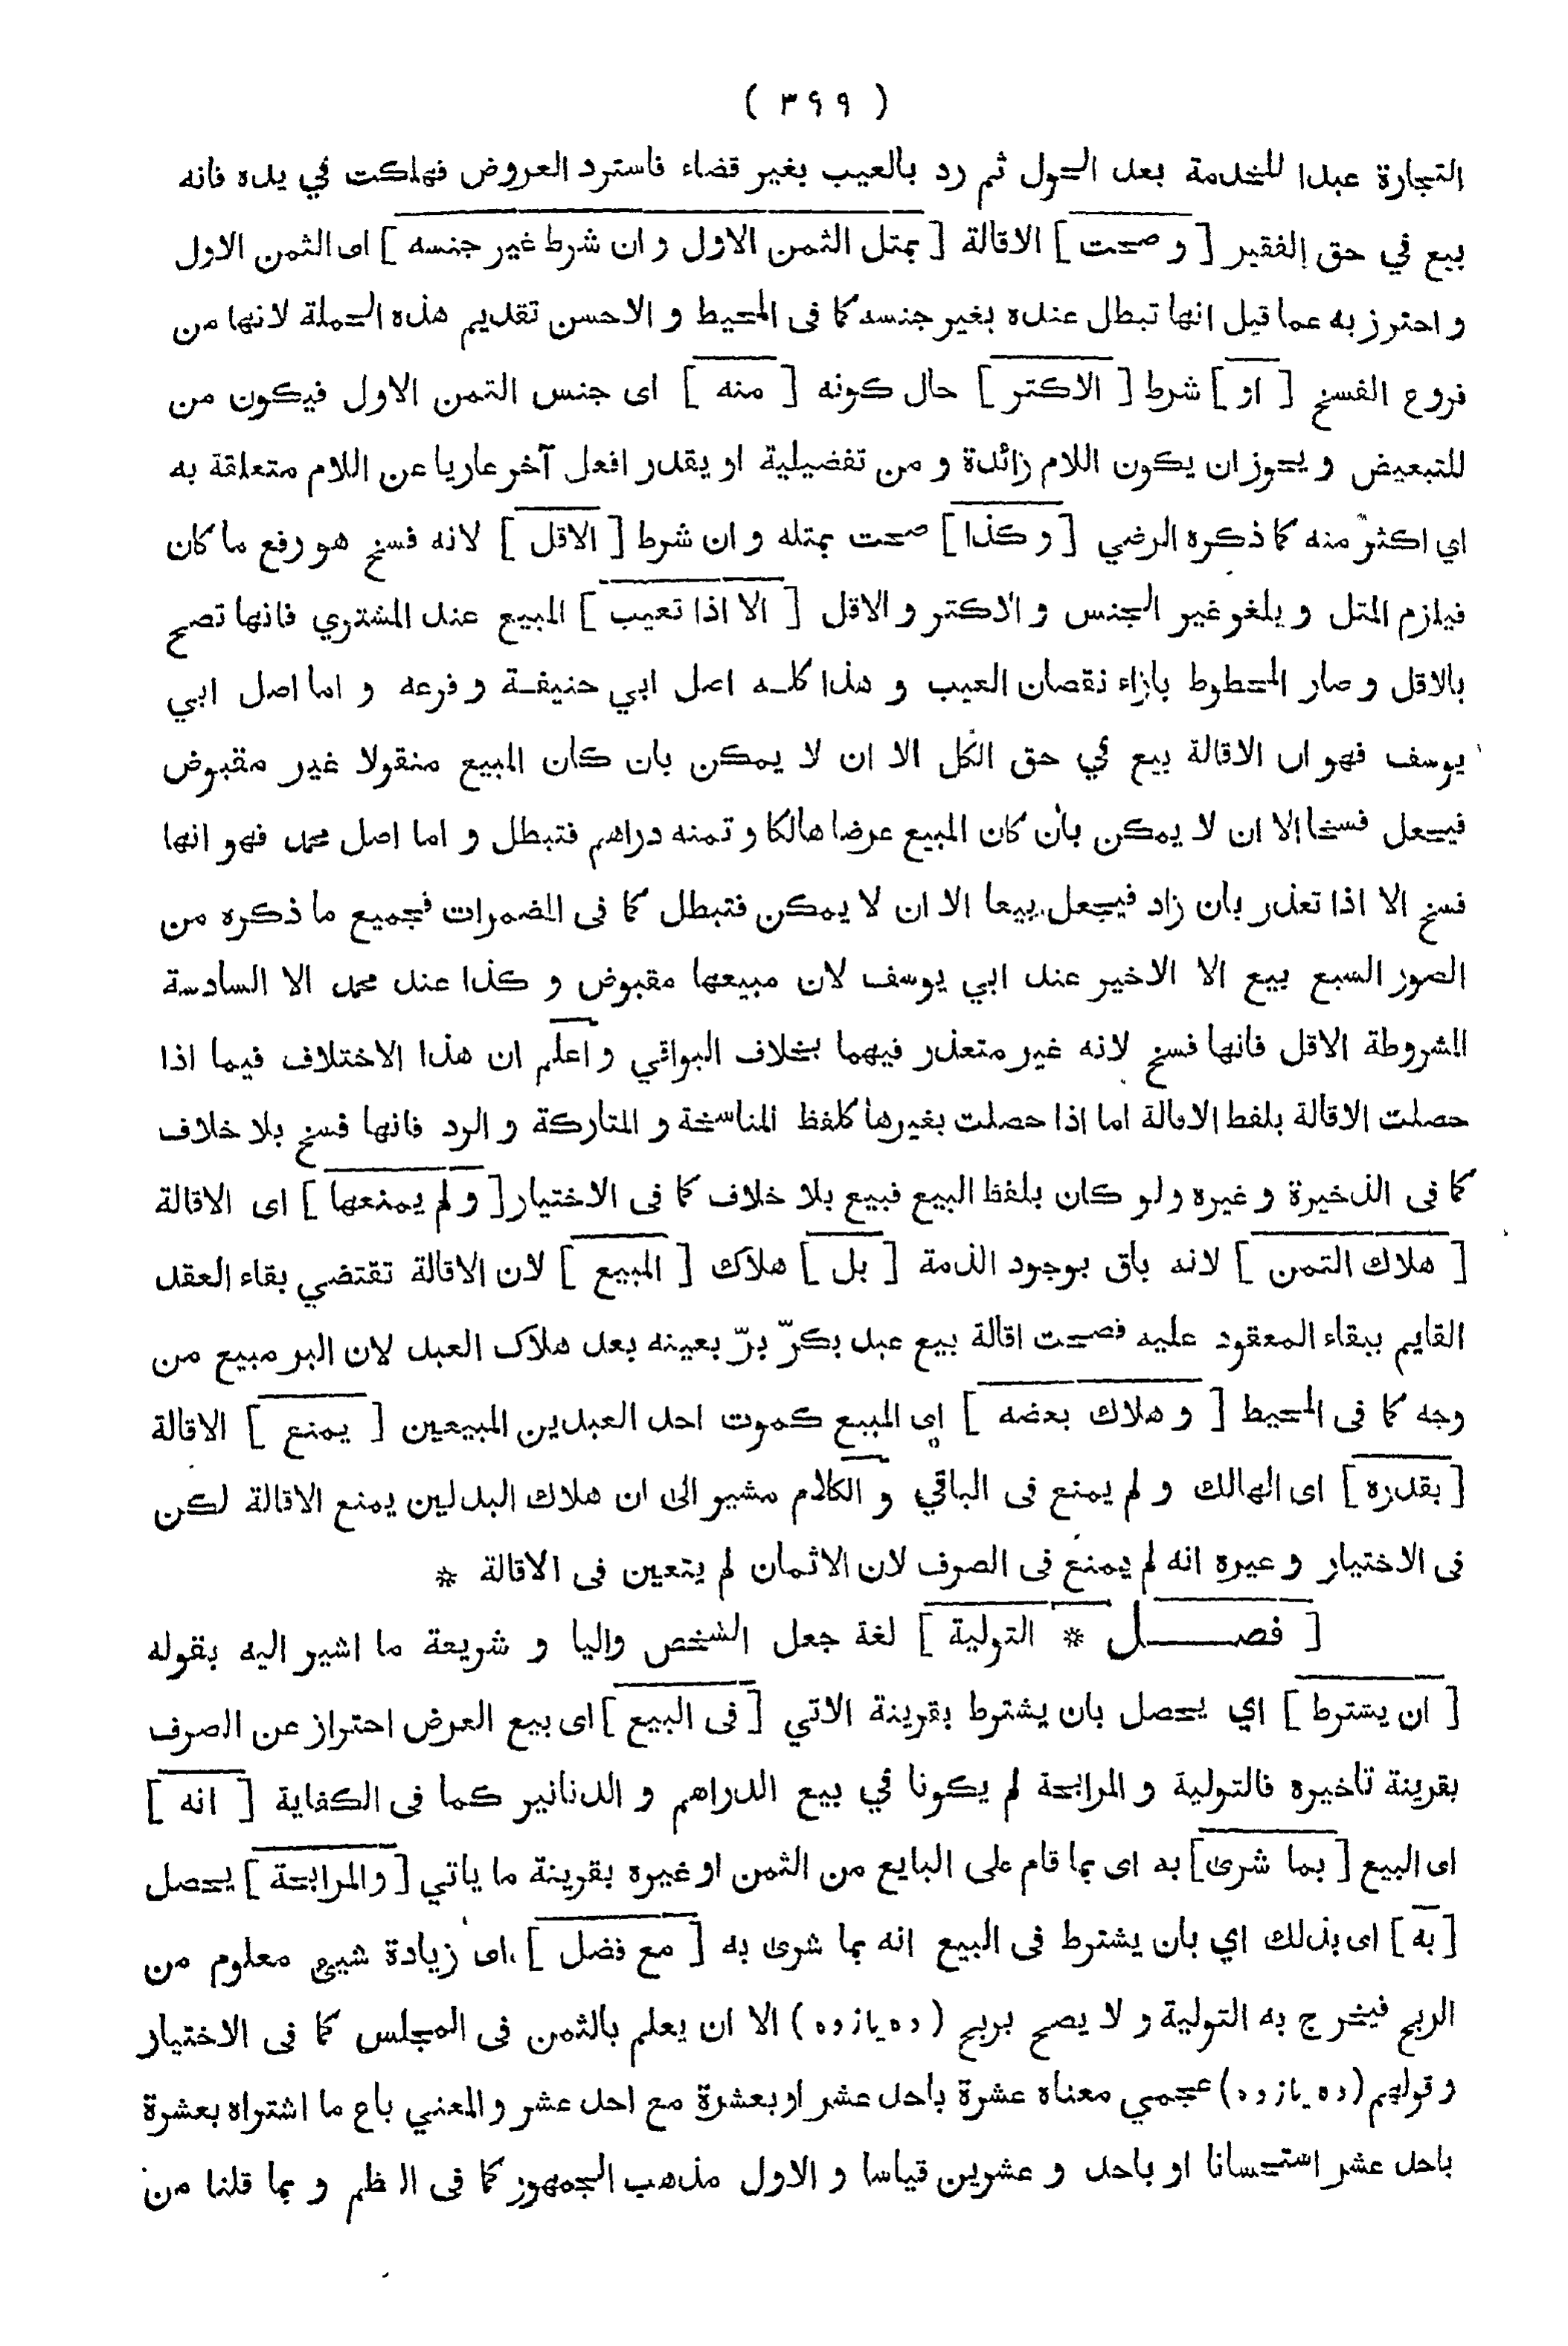 ( ٣٤٩ )
التجارة عبدا للخدمة بعد الحول ثم رد بالعيب بغير قضاء فاسترد العروض فهلكت في يده فانه
بيع في حق الفقير [ و صحت ] الاقالة [ بمثل الثمن الاول و ان شرط غير جنسه ] اى الثمن الاول
و احترز به عما قيل انها تبطل عنده بغير جنسه كما فى المحيط و الاحسن تقديم هذه الجملة لانها من
فروع الفسخ [ او ] شرط [ الاكثر ] حال كونه [ منه ] اى جنس الثمن الاول فيكون من
للتبعيض و يجوز ان يكون اللام زائدة و من تفضيلية او يقدر افعل آخر عاريا عن اللام متعلقة به
اي اكثر منه كما ذكره الرضي [ و كذا ] صحت بمثله و ان شرط [ الاقل ] لانه فسخ هو رفع ما كان
فيلزم المثل و يلغو غير الجنس و الاكثر و الاقل [ الا اذا تعيب ] المبيع عند المشتري فانها تصح
بالاقل و صار المحطوط بازاء نقصان العيب و هذا كله اصل ابي حنيفة و فرعه و اما اصل ابي
يوسف فهو ان الاقالة بيع في حق الكل الا ان لا يمكن بان كان المبيع منقولا غير مقبوض
فيجعل فسخا الا ان لا يمكن بان كان المبيع عرضا هالكا و ثمنه دراهم فتبطل و اما اصل محمد فهو انها
فسخ الا اذا تعذر بان زاد فيجعل بيعا الا ان لا يمكن فتبطل كما فى المضمرات فجميع ما ذكره من
الصور السبع بيع الا الاخير عند ابي يوسف لان مبيعها مقبوض و كذا عند محمد الا السادسة
المشروطة الاقل فانها فسخ لانه غير متعذر فيهما بخلاف البواقي و اعلم ان هذا الاختلاف فيما اذا
حصلت الاقالة بلفظ الاقالة اما اذا حصلت بغيرها كلفظ المناسخة و المتاركة و الرد فانها فسخ بلا خلاف
كما فى الذخيرة و غيره و لو كان بلفظ البيع فبيع بلا خلاف كما فى الاختيار [ و لم يمنعها ] اى الاقالة
[ هلاك الثمن ] لانه باق بوجود الذمة [ بل ] هلاك [ المبيع ] لان الاقالة تقتضي بقاء العقد
القايم ببقاء المعقود عليه فصحت اقالة بيع عبد بكرّ برّ بعينه بعد هلاك العبد لان البر مبيع من
وجه كما فى المحيط [ و هلاك بعضه ] اى المبيع كموت احد العبدين المبيعين [ يمنع ] الاقالة
[ بقدره ] اى الهالك و لم يمنع فى الباقي و الكلام مشير الى ان هلاك البدلين يمنع الاقالة لكن
فى الاختيار و غيره انه لم يمنع فى الصرف لان الاثمان لم يتعين فى الاقالة *
[ فصل * التولية ] لغة جعل الشخص واليا و شريعة ما اشير اليه بقوله
[ ان يشترط ] اي يحصل بان يشترط بقرينة الاتي [ فى البيع ] اى بيع العرض احتراز عن الصرف
بقرينة تاخيره فالتولية و المرابحة لم يكونا في بيع الدراهم و الدنانير كما فى الكفاية [ انه ]
اى البيع [ بما شرى ] به اى بما قام على البايع من الثمن او غيره بقرينة ما ياتي [ و المرابحة ] يحصل
[ به ] اى بذلك اي بان يشترط فى البيع انه بما شرى به [ مع فضل ] اى زيادة شيئ معلوم من
الربح فيخرج به التولية و لا يصح بربح ( ده يازده ) الا ان يعلم بالثمن فى المجلس كما فى الاختيار
و قولهم ( ده يازده ) عجمي معناه عشرة باحد عشر او بعشرة مع احد عشر و المعني باع ما اشتراه بعشرة
باحد عشر استحسانا او باحد و عشرين قياسا و الاول مذهب الجمهور كما فى النظم و بما قلنا من